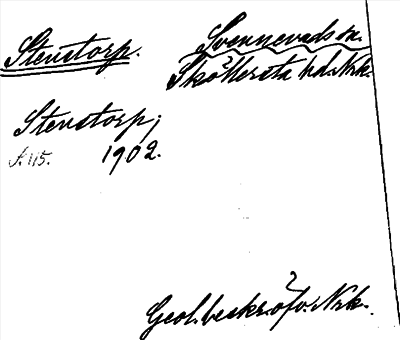 Stenstorp. Svennevads sn.
Sköllersta hd. Nrk.
Stenstorp;
S. 115. 1902.
Geol. beskr. öfv. Nrk.